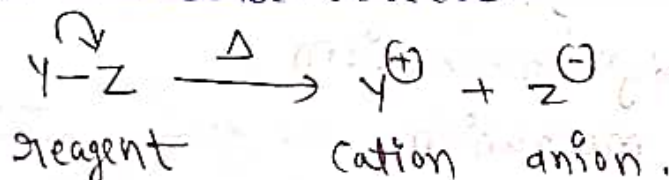 Y-Z Δ→ Y⊕ + Z⊖
reagent cation anion.